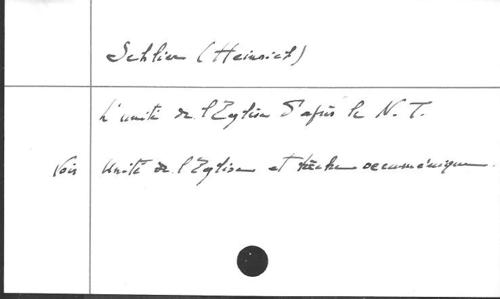 Schlier (Heinrich)
L'unité de l'Eglise d'après le N. T.
Voir Unité de l'Eglise et tâche oecuménique.